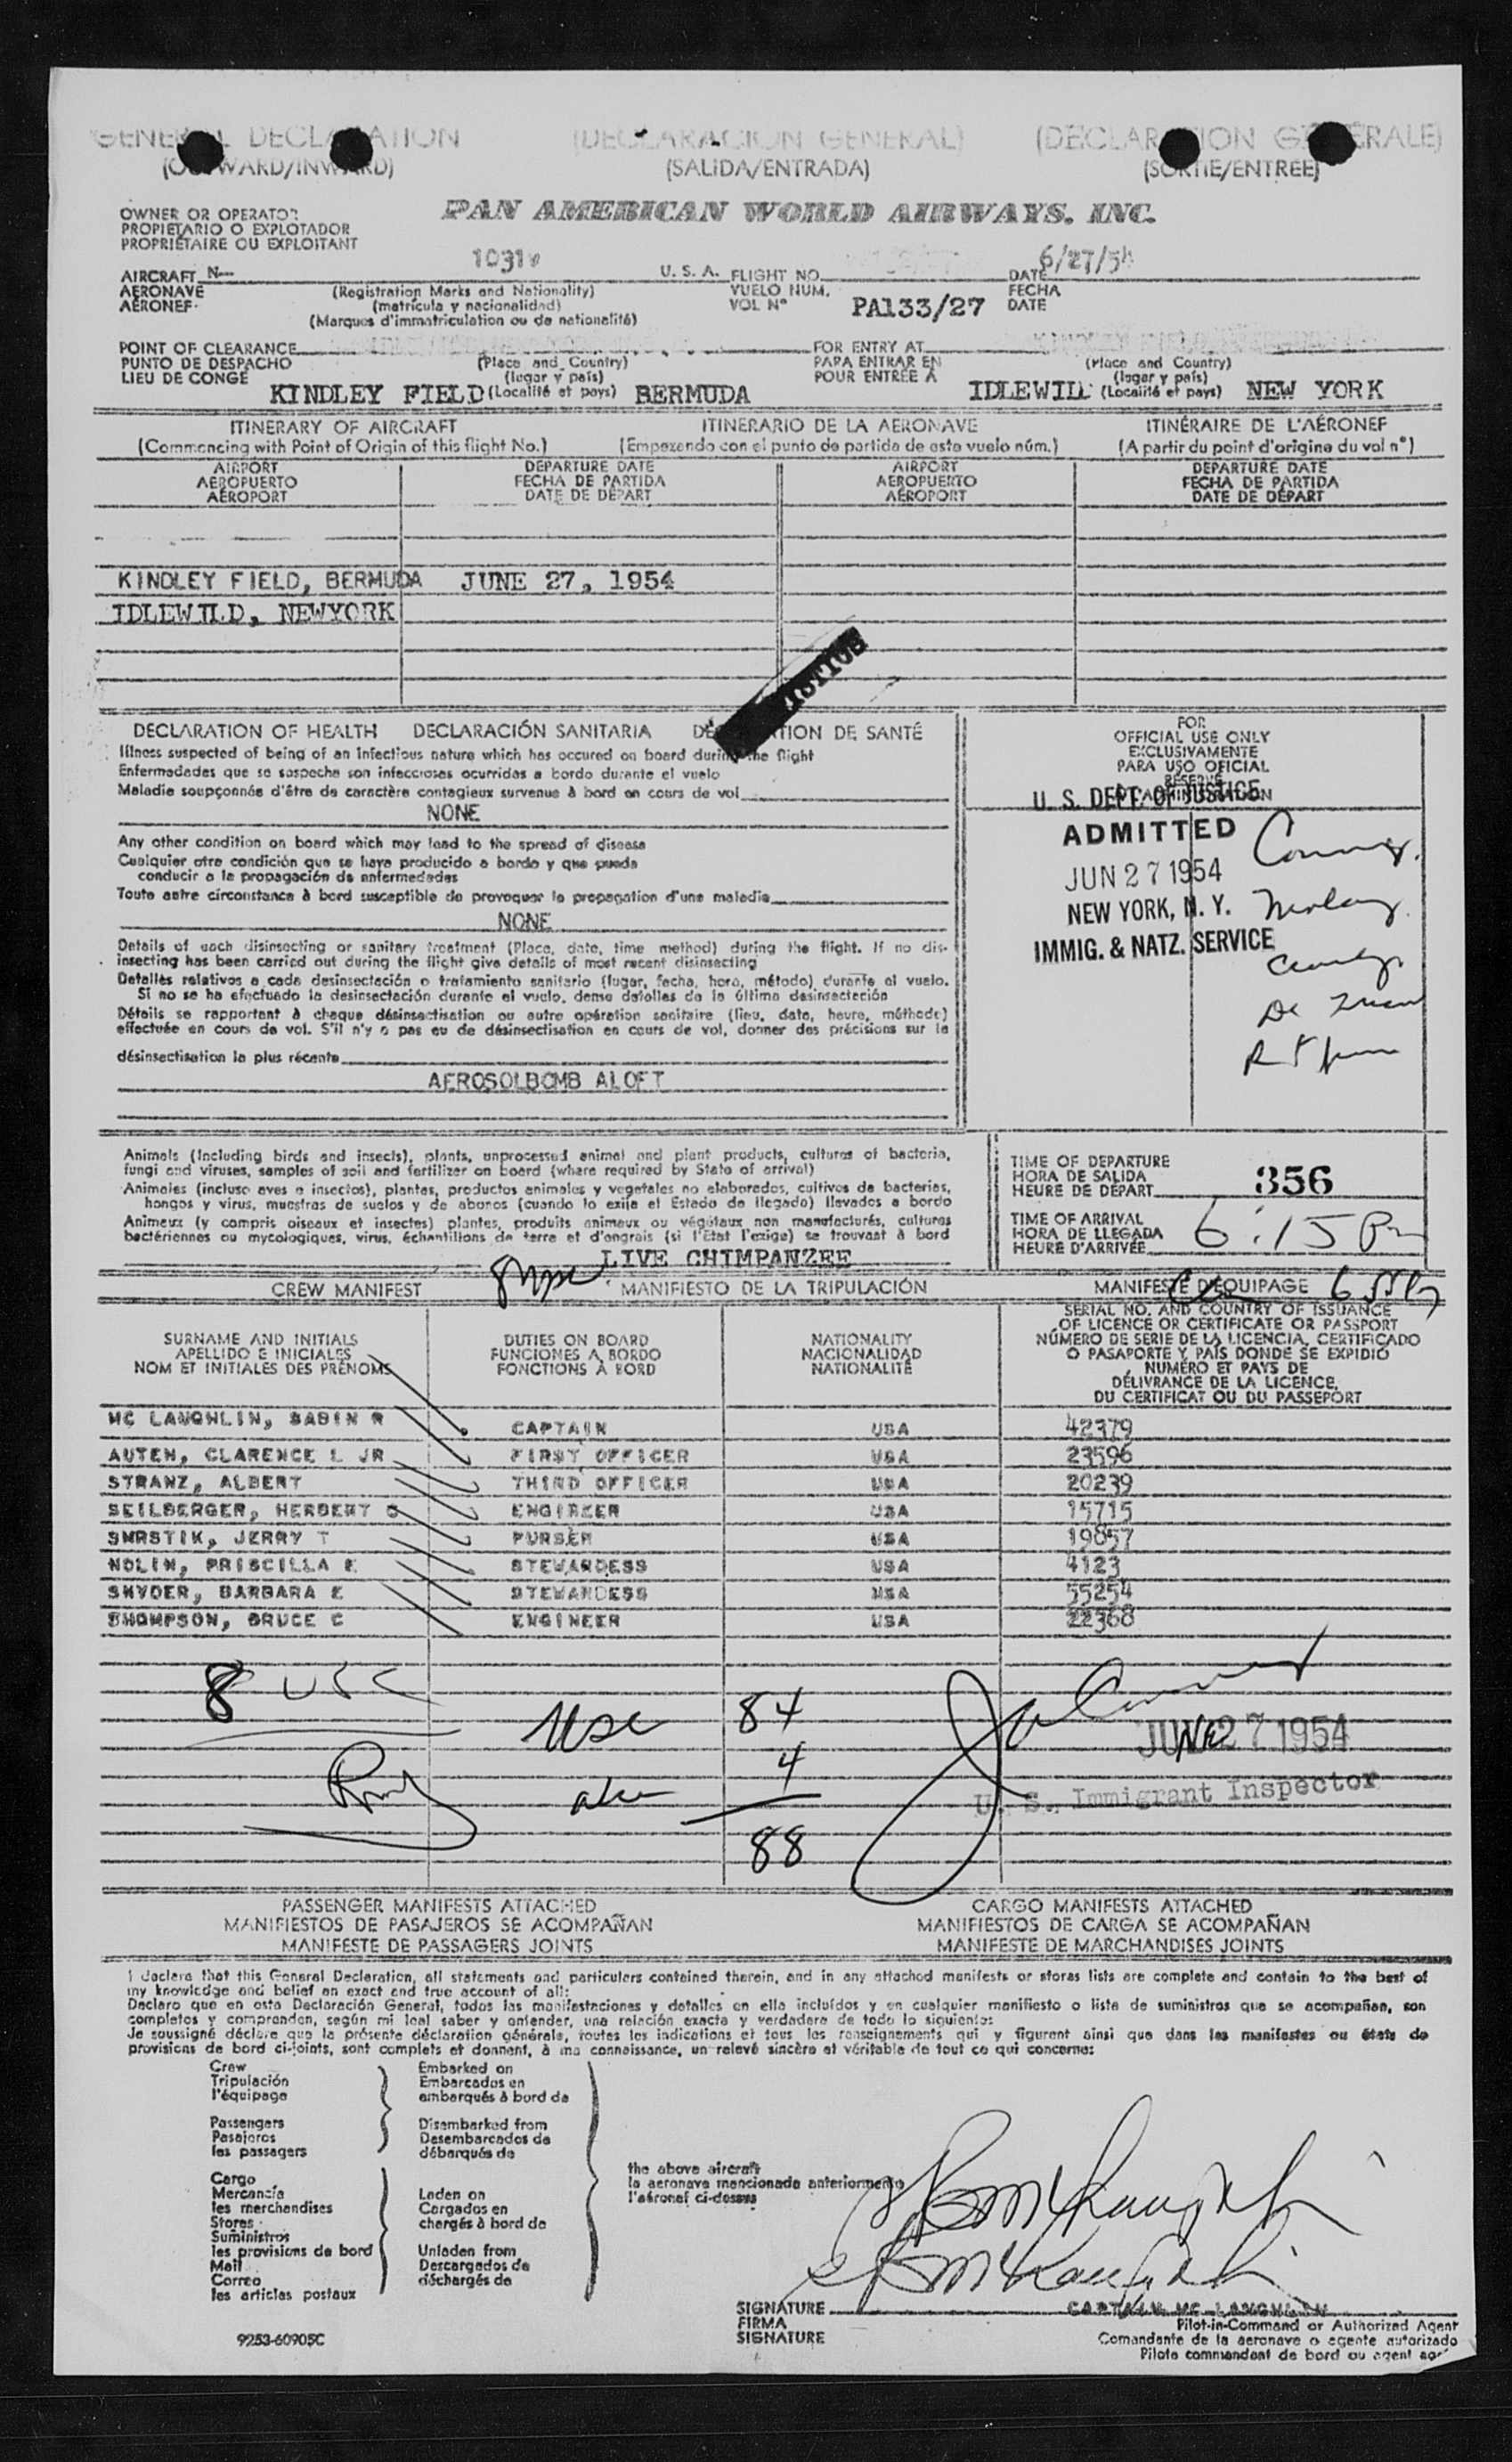 GENERAL DECLARATION (DECLARACION GENERAL) (DECLARATION GÉNÉRALE)
(OUTWARD/INWARD) (SALIDA/ENTRADA) (SORTIE/ENTREE)
OWNER OR OPERATOR
PROPIETARIO O EXPLOTADOR
PROPRIÉTAIRE OU EXPLOITANT
PAN AMERICAN WORLD AIRWAYS, INC.
AIRCRAFT N- U. S. A. FLIGHT NO. DATE 6/27/54
AERONAVE (Registration Marks and Nationality) VUELO NUM. FECHA
AÉRONEF (matrícula y nacionalidad) VOL Nº PA133/27 DATE
(Marques d'immatriculation ou de nationalité)
POINT OF CLEARANCE FOR ENTRY AT
PUNTO DE DESPACHO (Place and Country) PARA ENTRAR EN (Place and Country)
LIEU DE CONGÉ (lugar y país) POUR ENTRÉE À (lugar y país)
KINDLEY FIELD (Localité et pays) BERMUDA IDLEWIL (Localité et pays) NEW YORK
ITINERARY OF AIRCRAFT ITINERARIO DE LA AERONAVE ITINÉRAIRE DE L'AÉRONEF
(Commencing with Point of Origin of this flight No.) (Empezando con el punto de partida de este vuelo núm.) (A partir du point d'origine du vol nº)
AIRPORT DEPARTURE DATE AIRPORT DEPARTURE DATE
AEROPUERTO FECHA DE PARTIDA AEROPUERTO FECHA DE PARTIDA
AÉROPORT DATE DE DÉPART AÉROPORT DATE DE DÉPART
KINDLEY FIELD, BERMUDA JUNE 27, 1954
IDLEWILD, NEWYORK
DECLARATION OF HEALTH DECLARACIÓN SANITARIA DÉCLARATION DE SANTÉ
Illness suspected of being of an infectious nature which has occured on board during the flight
Enfermedades que se sospecha son infecciosas ocurridas a bordo durante el vuelo
Maladie soupçonnée d'être de caractère contagieux survenue à bord en cours de vol
NONE
Any other condition on board which may lead to the spread of disease
Cualquier otra condición que se haya producido a bordo y que pueda
conducir a la propagación de enfermedades
Toute autre circonstance à bord susceptible de provoquer la propagation d'une maladie
NONE
Details of each disinsecting or sanitary treatment (Place, date, time method) during the flight. If no dis-
insecting has been carried out during the flight give details of most recent disinsecting
Detalles relativos a cada desinsectación o tratamiento sanitario (lugar, fecha, hora, método) durante el vuelo.
Si no se ha efectuado la desinsectación durante el vuelo, dense detalles de la última desinsectación
Détails se rapportant à chaque désinsectisation ou autre opération sanitaire (lieu, date, heure, méthode)
effectuée en cours de vol. S'il n'y a pas eu de désinsectisation en cours de vol, donner des précisions sur la
désinsectisation la plus récente
AEROSOLBOMB ALOFT
FOR
OFFICIAL USE ONLY
EXCLUSIVAMENTE
PARA USO OFICIAL
RÉSERVÉ
U. S. DEPT. OF JUSTICE
ADMITTED
JUN 27 1954
NEW YORK, N. Y.
IMMIG. & NATZ. SERVICE
Animals (Including birds and insects), plants, unprocessed animal and plant products, cultures of bacteria,
fungi and viruses, samples of soil and fertilizer on board (where required by State of arrival)
Animales (incluso aves e insectos), plantas, productos animales y vegetales no elaborados, cultivos de bacterias,
hongos y virus, muestras de suelos y de abonos (cuando lo exija el Estado de llegada) llevados a bordo
Animaux (y compris oiseaux et insectes) plantes, produits animaux ou végétaux non manufacturés, cultures
bactériennes ou mycologiques, virus, échantillons de terre et d'engrais (si l'État l'exige) se trouvant à bord
LIVE CHIMPANZEE
TIME OF DEPARTURE
HORA DE SALIDA
HEURE DE DÉPART 356
TIME OF ARRIVAL
HORA DE LLEGADA
HEURE D'ARRIVÉE 6:15 Pm
CREW MANIFEST MANIFIESTO DE LA TRIPULACIÓN MANIFESTE D'ÉQUIPAGE
SURNAME AND INITIALS
APELLIDO E INICIALES
NOM ET INITIALES DES PRÉNOMS
DUTIES ON BOARD
FUNCIONES A BORDO
FONCTIONS À BORD
NATIONALITY
NACIONALIDAD
NATIONALITÉ
SERIAL NO. AND COUNTRY OF ISSUANCE
OF LICENCE OR CERTIFICATE OR PASSPORT
NÚMERO DE SERIE DE LA LICENCIA, CERTIFICADO
O PASAPORTE Y PAÍS DONDE SE EXPIDIÓ
NUMÉRO ET PAYS DE
DÉLIVRANCE DE LA LICENCE,
DU CERTIFICAT OU DU PASSEPORT
MC LAUGHLIN, SABIN R CAPTAIN USA 42379
AUTEN, CLARENCE L JR FIRST OFFICER USA 23596
STRANZ, ALBERT THIRD OFFICER USA 20239
SEILBERGER, HERBERT ENGINEER USA 15715
SMRSTIK, JERRY T PURSER USA 19857
NOLIN, PRISCILLA E STEWARDESS USA 4123
SNYDER, BARBARA E STEWARDESS USA 55254
THOMPSON, BRUCE C ENGINEER USA 22368
8 USC
USC 84
4
88
JUNE 27 1954
U. S. Immigrant Inspector
PASSENGER MANIFESTS ATTACHED CARGO MANIFESTS ATTACHED
MANIFIESTOS DE PASAJEROS SE ACOMPAÑAN MANIFIESTOS DE CARGA SE ACOMPAÑAN
MANIFESTE DE PASSAGERS JOINTS MANIFESTE DE MARCHANDISES JOINTS
I declare that this General Declaration, all statements and particulars contained therein, and in any attached manifests or stores lists are complete and contain to the best of
my knowledge and belief an exact and true account of all:
Declaro que en esta Declaración General, todas las manifestaciones y detalles en ella incluídos y en cualquier manifiesto o lista de suministros que se acompañan, son
completos y comprenden, según mi leal saber y entender, una relación exacta y verdadera de todo lo siguiente:
Je soussigné déclare que la présente déclaration générale, toutes les indications et tous les renseignements qui y figurent ainsi que dans les manifestes ou états de
provisions de bord ci-joints, sont complets et donnent, à ma connaissance, un relevé sincère et véritable de tout ce qui concerne:
Crew
Tripulación
l'équipage
Passengers
Pasajeros
les passagers
Cargo
Mercancía
les merchandises
Stores
Suministros
les provisions de bord
Mail
Correo
les articles postaux
Embarked on
Embarcados en
embarqués à bord de
Disembarked from
Desembarcados de
débarqués de
Laden on
Cargados en
chargés à bord de
Unladen from
Descargados de
déchargés de
the above aircraft
la aeronave mencionada anteriormente
l'aéronef ci-dessus
SIGNATURE CAPTAIN MC LAUGHLIN
FIRMA Pilot-in-Command or Authorized Agent
SIGNATURE Comandante de la aeronave o agente autorizado
Pilote commandant de bord ou agent
9253-60905C